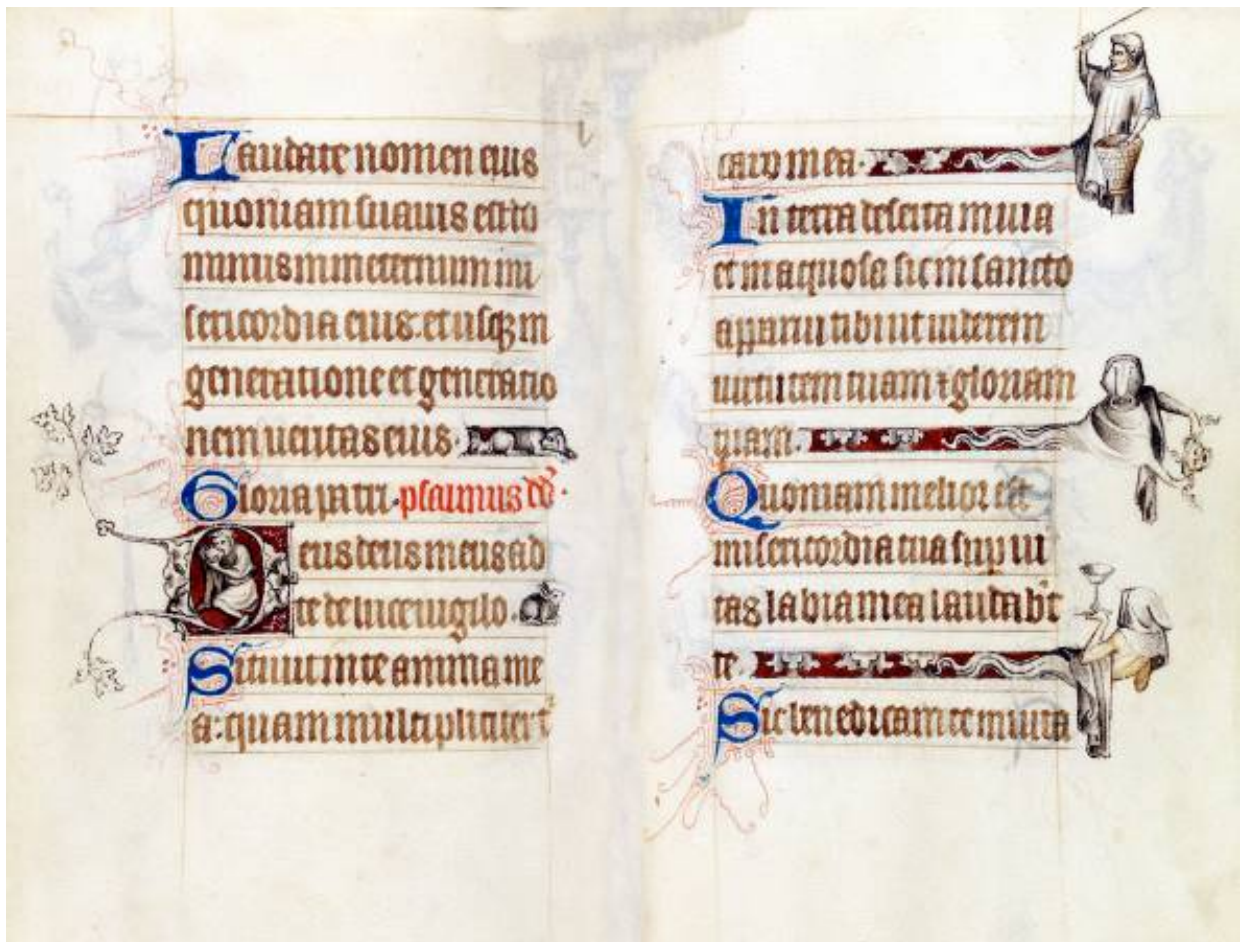 Laudate nomen eius
quoniam suauis est do
minus in eternum mi
sericordia eius: et usq; in
generatione et generatio
nem ueritas eius.
Gloria patri. psalmus dd.
Deus deus meus ad
te de luce uigilo.
Sitiuit in te anima me
a: quam multipliciter t
caro mea.
In terra deserta inuia
et inaquosa sic in sancto
apparui tibi ut uiderem
uirtutem tuam ⁊ gloriam
tuam.
Quoniam melior est
misericordia tua sup ui
tas labia mea laudabt
te.
Sic benedicam te in uita